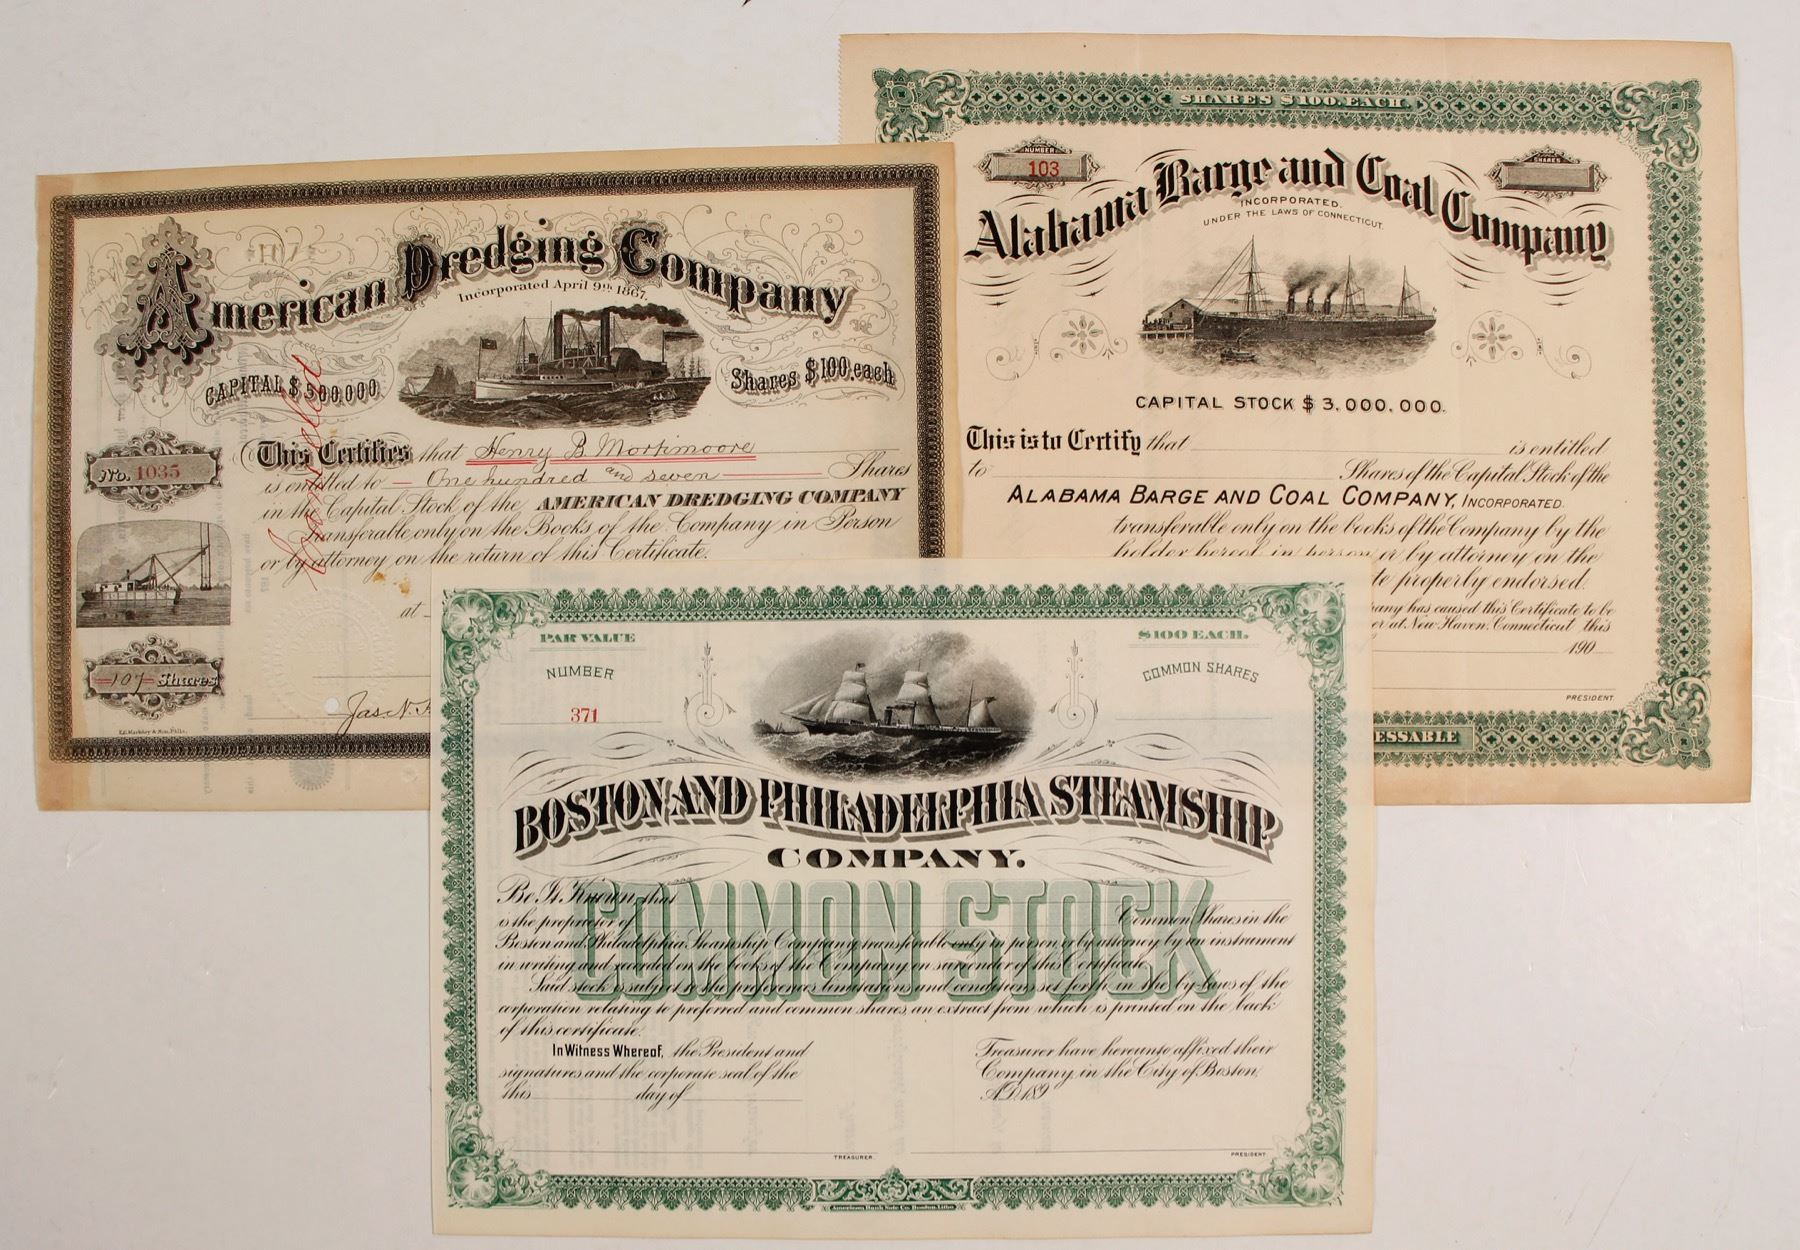 American Dredging Company
Incorporated April 9th 1867.
CAPITAL $ 300,000
Shares $100. each
Cancelled
No. 1035
This Certifies that Henry B Mortimoore
is entitled to One hundred and seven Shares
in the Capital Stock of the AMERICAN DREDGING COMPANY
Transferable only on the Books of the Company in Person
or by attorney on the return of this Certificate.
at
107 Shares
Jas. N.
SHARES $100. EACH.
NUMBER
103
SHARES
Alabama Barge and Coal Company
INCORPORATED.
UNDER THE LAWS OF CONNECTICUT.
CAPITAL STOCK $ 3,000,000.
This is to Certify that is entitled
to Shares of the Capital Stock of the
ALABAMA BARGE AND COAL COMPANY, INCORPORATED.
transferable only on the books of the Company by the
holder hereof in person or by attorney on the
properly endorsed.
has caused this Certificate to be
at New Haven, Connecticut this
190
PRESIDENT.
PAR VALUE
$100 EACH.
NUMBER
COMMON SHARES
371
BOSTON AND PHILADELPHIA STEAMSHIP
COMPANY.
COMMON STOCK
Be It Known that
is the proprietor of Common Shares in the
Boston and Philadelphia Steamship Company transferable only in person or by attorney by an instrument
in writing and recorded on the books of the Company on surrender of this Certificate.
Said stock is subject to the preferences limitations and conditions set forth in the by-laws of the
corporation relating to preferred and common shares, an extract from which is printed on the back
of this certificate.
In Witness Whereof, the President and Treasurer have hereunto affixed their
signatures and the corporate seal of the Company, in the City of Boston,
this day of A.D. 189
TREASURER.
PRESIDENT.
American Bank Note Co. Boston. Litho.